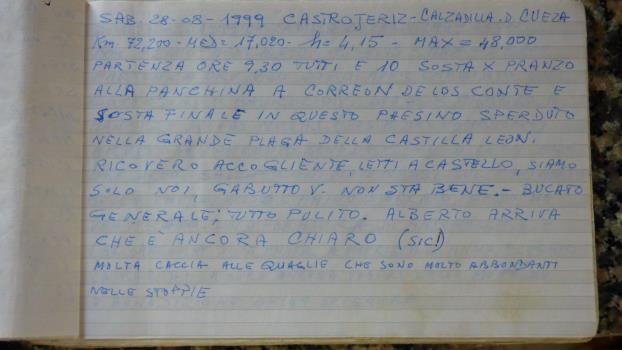 SAB. 28-08-1999 CASTROJERIZ-CALZADILLA. D. CUEZA
Km. 72,200 - MED= 17,020 - h= 4,15 - MAX = 48,000
PARTENZA ORE 9,30 TUTTI E 10 SOSTA X PRANZO
ALLA PANCHINA A CORREON DE LOS CONTE E
SOSTA FINALE IN QUESTO PAESINO SPERDUTO
NELLA GRANDE PLAGA DELLA CASTILLA LEON.
RICOVERO ACCOGLIENTE, LETTI A CASTELLO, SIAMO
SOLO NOI, GABUTTO V. NON STA BENE. - BUCATO
GENERALE; TUTTO PULITO. ALBERTO ARRIVA
CHE È ANCORA CHIARO (SIC!)
MOLTA CACCIA ALLE QUAGLIE CHE SONO MOLTO ABBONDANTI
NELLE STOPPIE